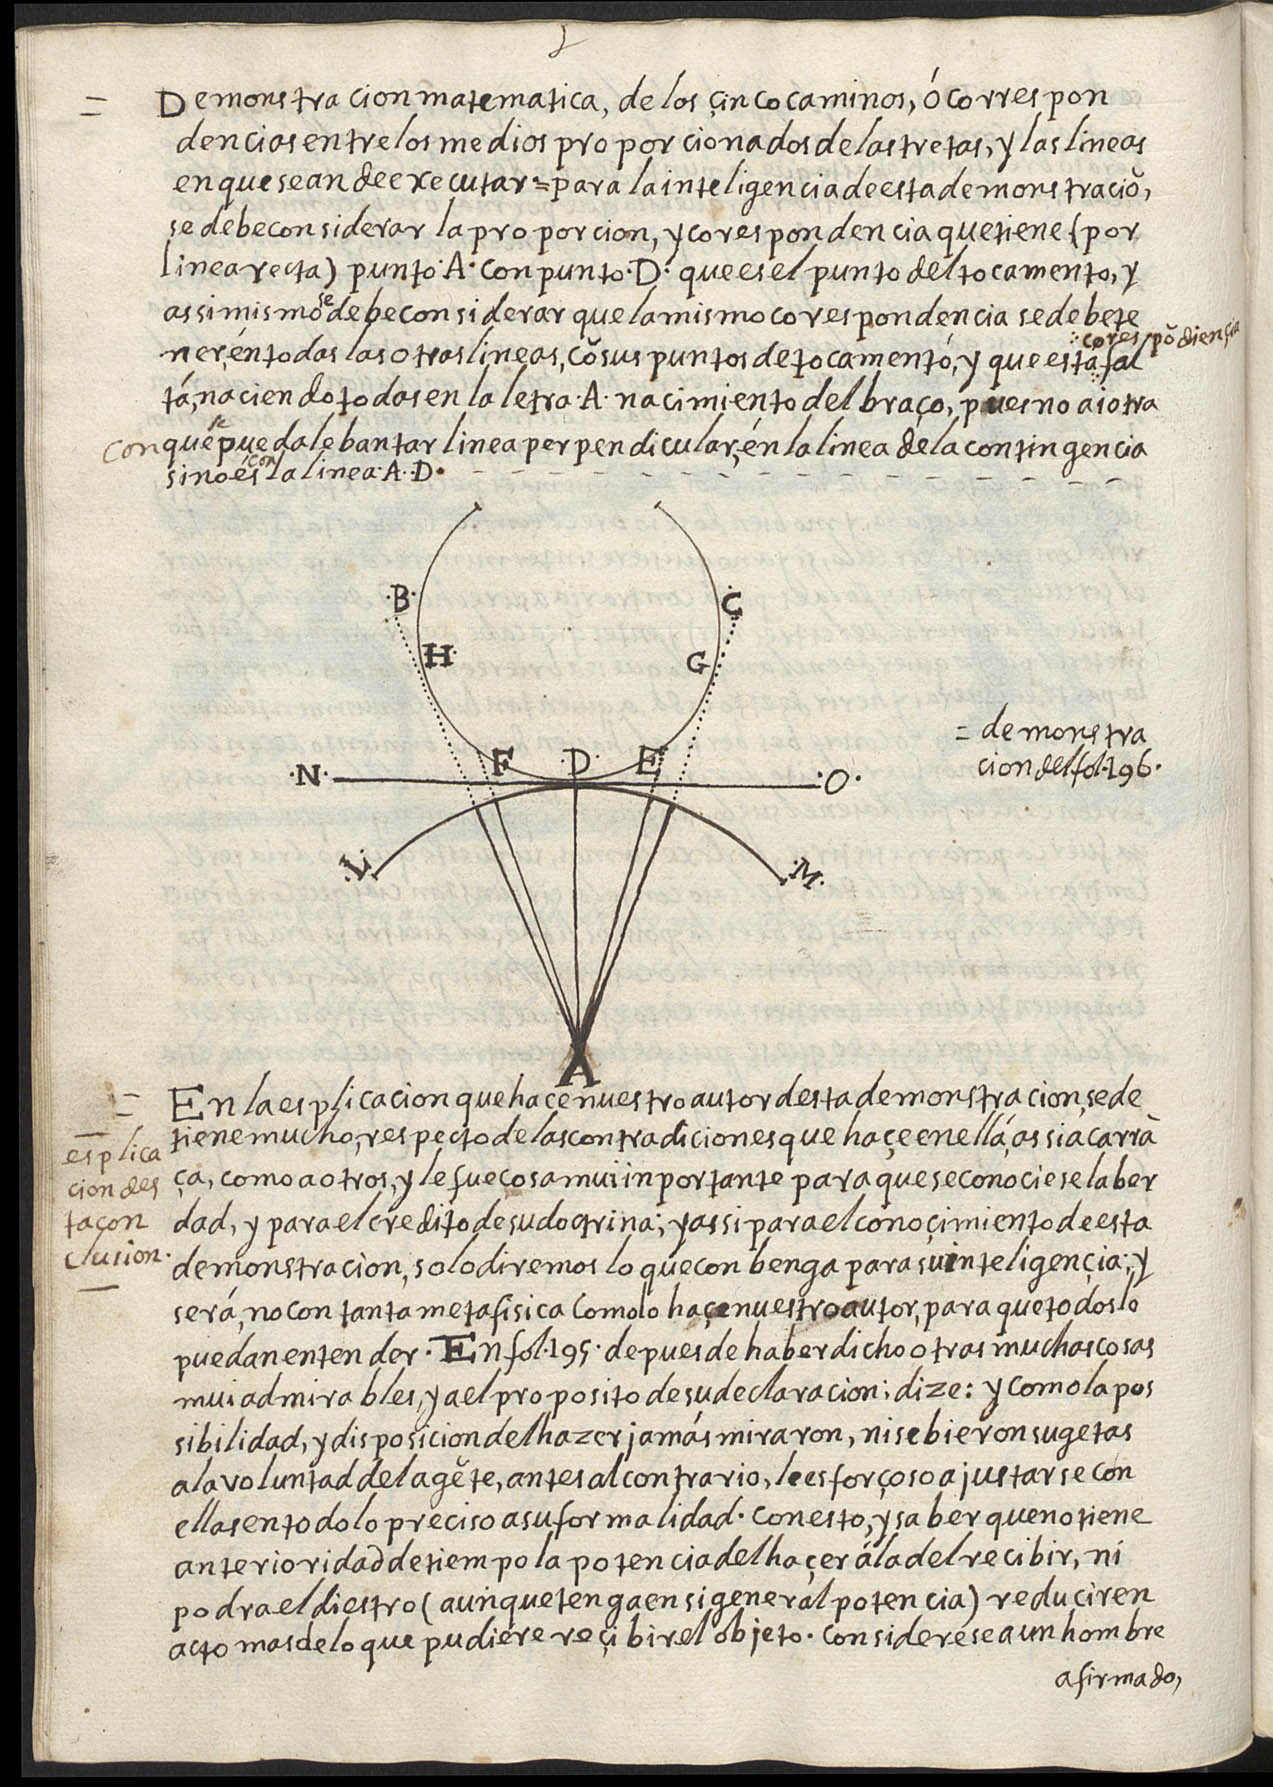 = Demonstracion matematica, de los çinco caminos, ó correspon
dencias entre los medios proporcionados de las tretas, y las lineas
en que sean de executar = para la inteligencia de esta demonstraciõ,
se debe considerar la proporcion, y corespondencia que tiene (por
linea recta) punto · A · con punto · D · que es el punto del tocamento, y
assi mismo se debe considerar que la mismo corespondencia se debe te
ner, én todas las otras lineas, cõ sus puntos de tocamentó, y que esta corespõdiençia fal
tá, naciendo todas en la letra · A · nacimiento del braço, pues no ai otra
con que se pueda lebantar linea perpendicular, én la linea de la contingencia
sino es con la linea A · D ·
·B· C
H G
F D E
·N· ·O·
= demonstra
cion del fol · 196 ·
·L· ·M·
A
= En la esplicacion que haçe nuestro autor desta demonstracion, se de
tiene mucho, respecto de las contradiciones que haçe en ellá, assi a carrà
ça, como a otros, y le fue cosa mui inportante para que se conociese la ber
dad, y para el credito de su doctrina; y assi para el conoçimiento de esta
demonstracion, solo diremos lo que conbenga para su inteligençia; y
será, no con tanta metafisica como lo haçe nuestro autor, para que todos lo
puedan entender · En fol · 195 · depues de haber dicho otras muchas cosas
mui admirables, y a el proposito de su declaracion; dize: y como la pos
sibilidad, y disposicion del hazer jamás miraron, ni se bieron sugetas
a la voluntad de la gẽte, antes al contrario, le es forçoso ajustarse con
ellas en todo lo preciso a su formalidad · con esto, y saber que no tiene
anterioridad de tiempo la potencia del haçer á la del recibir, ni
podra el diestro (aunque tenga en si general potencia) reducir en
acto mas de lo que pudiére reçibir el objeto · considerése a un hombre
afirmado,
esplica
cion des
ta con
clusion ·